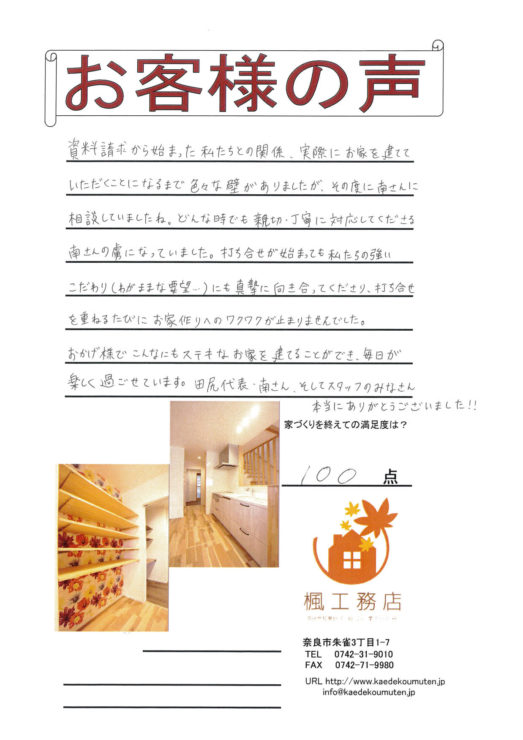 お客様の声
資料請求から始まった私たちとの関係、実際にお家を建てて
いただくことになるまで色々な壁がありましたが、その度に南さんに
相談していましたね。どんな時でも親切・丁寧に対応してくださる
南さんの虜になっていました。打ち合せが始まっても私たちの強い
こだわり(わがままな要望…)にも真摯に向き合ってくださり、打ち合せ
を重ねるたびにお家作りへのワクワクが止まりませんでした。
おかげ様でこんなにもステキなお家を建てることができ、毎日が
楽しく過ごせています。田尻代表・南さん、そしてスタッフのみなさん
本当にありがとうございました!!
家づくりを終えての満足度は?
100 点
楓工務店
奈良市朱雀3丁目1-7
TEL 0742-31-9010
FAX 0742-71-9980
URL http://www.kaedekoumuten.jp
info@kaedekoumuten.jp